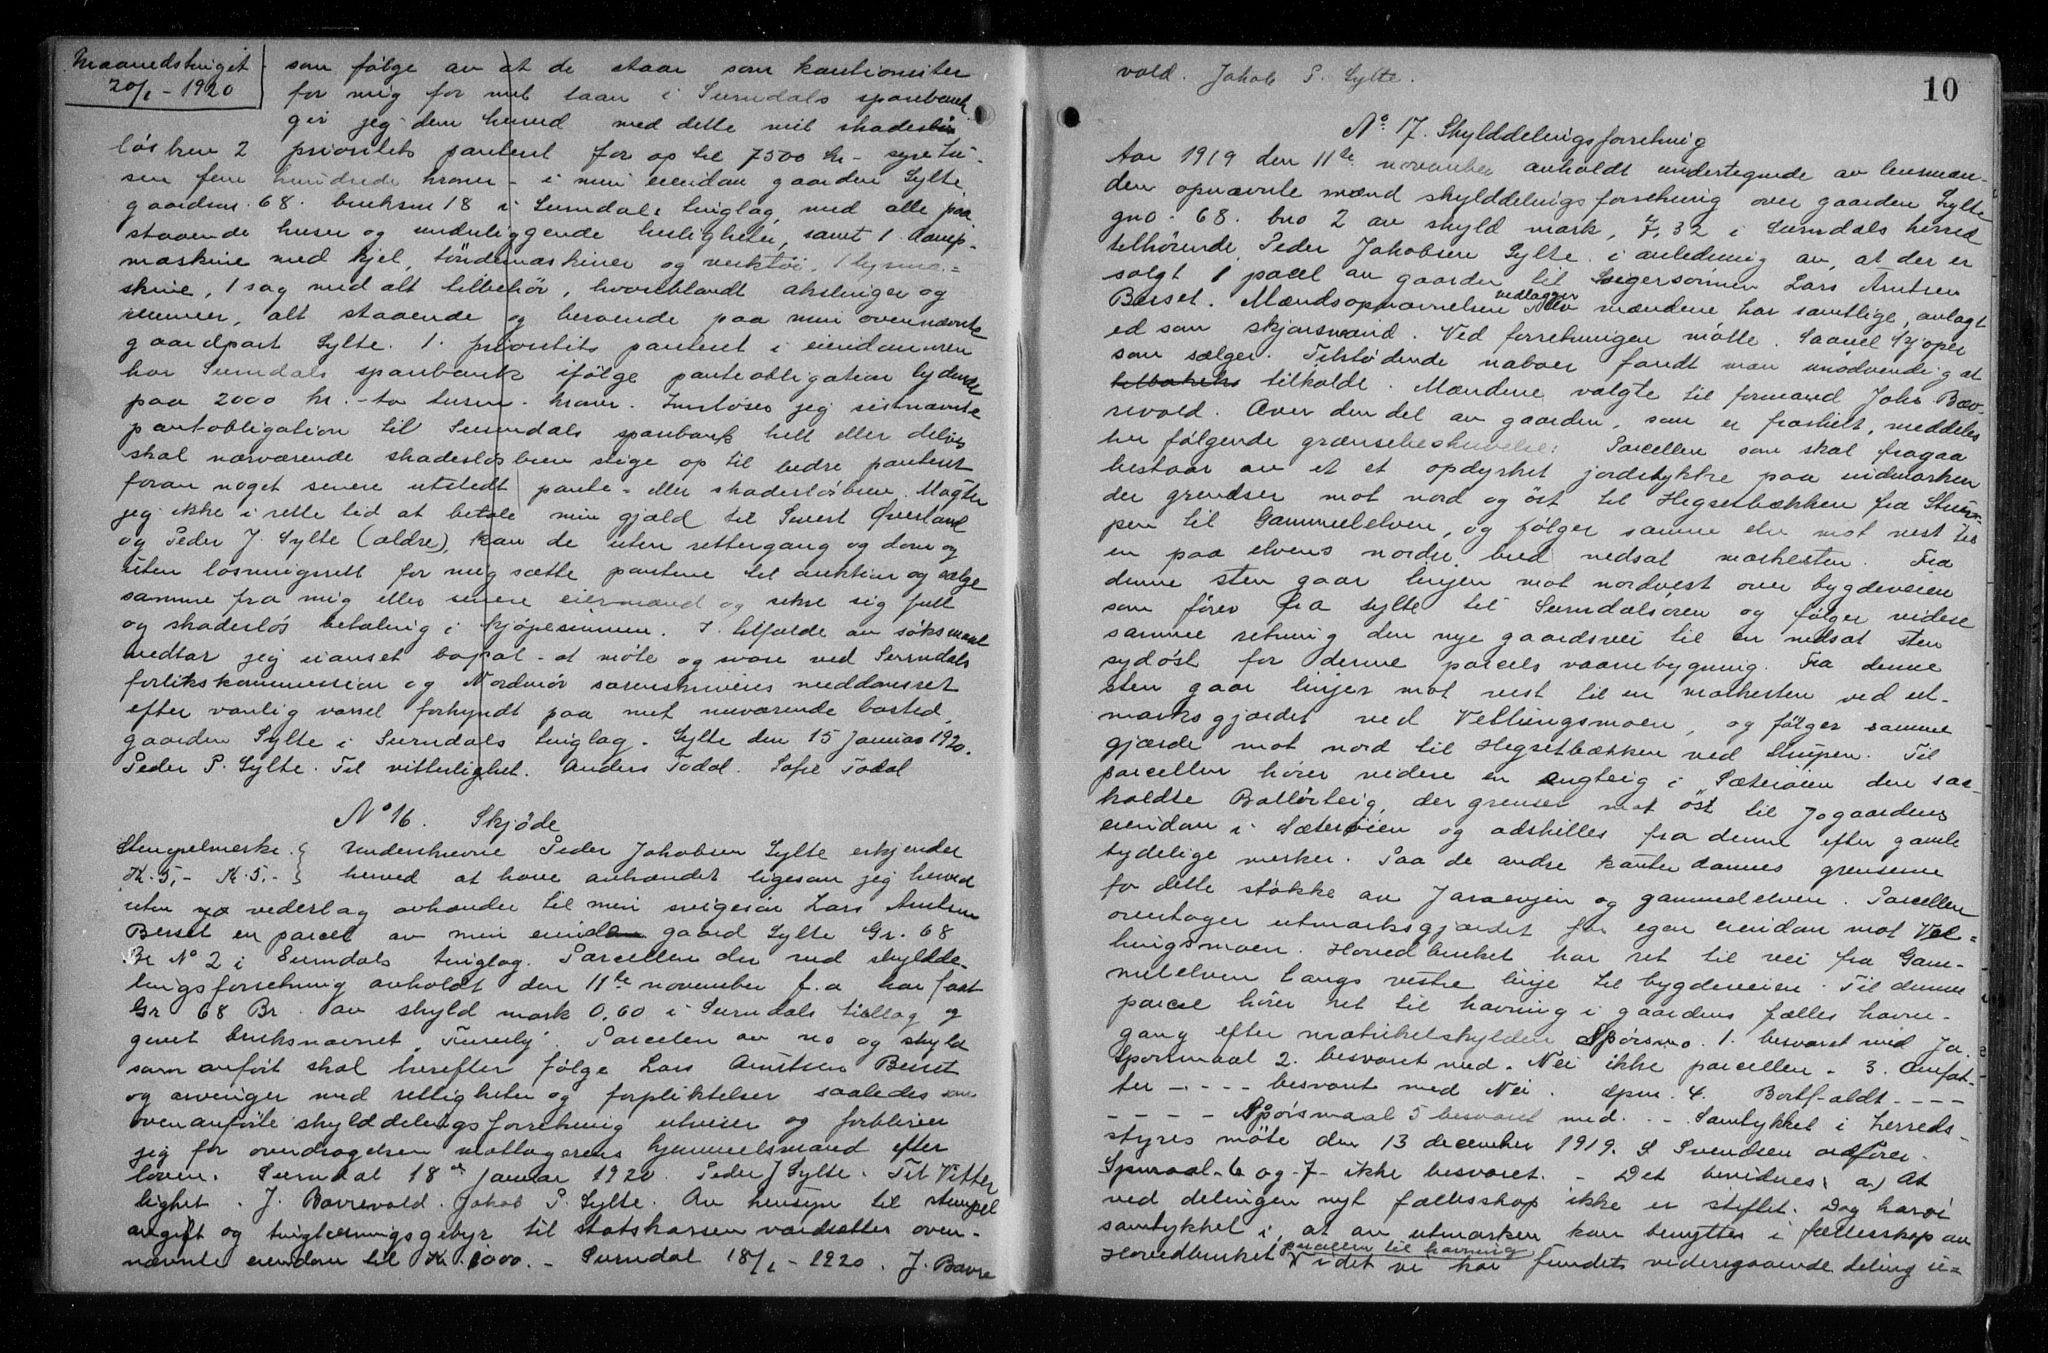 Maanedstinget
20/1 - 1920
som følge av at de staar som kautionister
for mig for mit laan i Surndals sparebank
gir jeg dem herved med dette mit skadesløs
løsbrev 2 prioritets panteret for op til 7500 kr - syv tu-
sen fem hundrede kroner - i min eiendom gaarden Sylte
gaardsnr. 68. bruksnr 18 i Surndals tinglag, med alle paa
staaende huser og underliggende herligheter, samt 1 damp-
maskine med kjel, töndemaskiner og verktöi, 1 lysma-
skine, 1 sag med alt tilbehör, hvoriblandt akslinger og
remmer, alt staaende og beroende paa min ovennævnte
gaardpart Sylte. 1. prioritets panteret i eiendommen
har Surndals sparebank ifölge panteobligation lydende
paa 2000 kr. - to tusen - kroner. Innløses jeg sistnævnte
pantobligation til Surndals sparebank helt eller delvis
skal nærværende skadesløsbrev stige op til bedre panteret
foran noget senere utstedt pante- eller skadesløsbrev. Magter
jeg ikke i rette tid at betale min gjæld til Sivert Øverland
og Peder J. Sylte (ældre), kan de uten rettergang og dom og
uten løsningsrett for mig sætte pantene til auktion og sælge
samme fra mig eller senere eiermænd og sikre sig full
og skadesløs betaling i kjöpesummen. I tilfælde av søksmaal
vedtar jeg uanset bopæl at møte og svare ved Surndals
forlikskommission og Nordmör sorenskriveries meddomsret
efter vanlig varsel forkyndt paa mit nuværende bosted,
gaarden Sylte i Surndals tinglag. Sylte den 15 januar 1920.
Peder P. Sylte. Til vitterlighet. Anders Todal. Sofie Todal
No 16. Skjöde
Stempelmerke { Underskrevne Peder Jakobsen Sylte erkjender
Kr. 5,- Kr. 5.- } herved at have avhændet ligesom jeg herved
uten vederlag avhænder til min svigersön Lars Arntsen
Beset en parcel av min gaard Sylte Gr. 68
Br No 2 i Surndals tinglag. Parcellen der ved skyldde-
lingsforretning avholdt den 11te november f.a har faat
Gr 68 Br . av skyld mark 0,60 i Surndals tinglag og
givet bruksnavnet . Parcelen av no og skyld
som anført skal herefter følge Lars Arntsen Beset
og arvinger med rettigheter og forpliktelser saaledes som
ovenanførte skylddelingsforretning utviser og forbliver
jeg for overdragelsen mottagerens hjemmelsmand efter
loven. Surndal 18de januar 1920. Peder J Sylte. Til Vitter
lighet. J. Bævrevold. Jakob P. Sylte. Av hensyn til stempel
avgift og tinglæsningsgebyr til statskassen værdsettes oven-
nævnte eiendom til Kr. 1000. - Surndal 18/1 - 1920. J. Bævre
10
vold. Jakob P. Sylte.
No 17. Skylddelingsforretning
Aar 1919 den 11te november avholdt undertegnede av lensman-
den opnævnte mænd skylddelingsforretning over gaarden Sylte
gno. 68. bno 2 av skyld mark, 7,32 i Surndals herred
tilhörende Peder Jakobsen Sylte i anledning av, at der er
solgt 1 parcel av gaarden til svigersönnen Lars Arntsen
Beset. Mændsopnævnelsen vedlægges mændene har samtlige, avlagt
ed som skjønsmænd. Ved forretningen mötte. Saavel Kjöper
som sælger. Tilstödende naboer fandt man unödvendig at
tilkalde. Mændene valgte til formand Johs Bæv-
revold. Over den del av gaarden, som er fraskilt, meddeles
her følgende grænsebeskrivelse: Parcellen som skal fragaa
bestaar av et et opdyrket jordstykke paa indmarken
der grendser mot nord og öst til Hegsetbækken fra Stru-
pen til Gammelelven, og følger samme elv mot vest til
en paa elvens nordre bred nedsat merkesten. Fra
denne sten gaar linjen mot nordvest over bygdeveien
som förer fra Sylte til Surndalsøren og følger videre
samme retning den nye gaardsvei til en nedsat sten
sydöst for denne parcels vaanebygning. Fra denne
sten gaar linjen mot vest til en merkesten ved ut-
marksgjærdet ved Vellingsmoen, og følger samme
gjærde mot nord til Hegsetbækken ved Strupen. Til
parcellen hörer videre en engteig i Sæteröien den saa-
kaldte Ballörteig, der grenser mot öst til Jogaardens
eiendom i Sæteröien og adskilles fra denne efter gamle
tydelige merker. Paa de andre kanter dannes grenserne
for dette støkke av Jaraevjen og gammelelven. Parcellen
overtager utmarksgjærdet for egen eiendom mot Vel-
lingsmoen. Hovedbruket har ret til vei fra Gam-
melelven langs vestre linje til bygdeveien. Til denne
parcel hörer ret til havning i gaardens fælles havne-
gang efter matrikelskylden Spörsmo. 1. besvaret med Ja.
Sporsmaal 2. besvaret med. Nei ikke parcellen. 3. Omfat-
ter - - - - besvart med Nei. Spm. 4. Bortfaldt. - - - -
- - - - Spörsmaal 5 besvaret med. - - Samtykket i herreds-
styres möte den 13 december 1919. S Svendsen ordförer.
Spmaal - 6 og - 7 - ikke besvaret. - Det bevidnes: a) At
ved delingen nyt fællesskap ikke er stiftet. Dog har vi
samtykket i, at av utmarken kan benyttes i fællesskap av
Hovedbruket parcellen til havning idet vi har fundet videregaaende deling u=